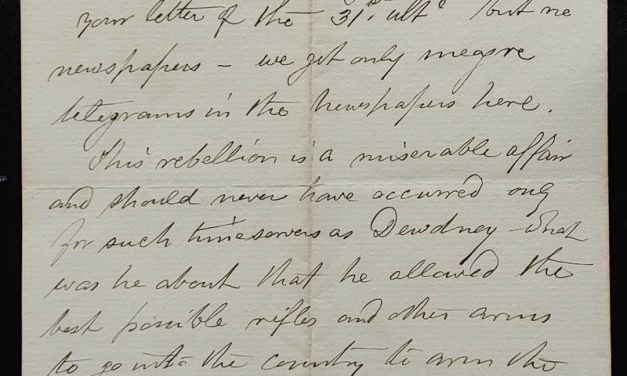 your letter of the 31st ulto but no
newspapers – we get only meagre
telegrams in the newspapers here.
This rebellion is a miserable affair
and should never have occurred only
for such timeservers as Dewdney – what
was he about that he allowed the
best possible rifles and other arms
to go into the country to arm the